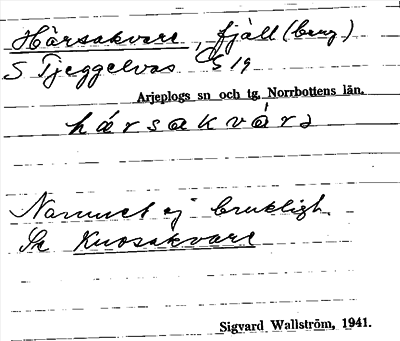 Hårsakvare, fjäll (berg)
S Tjeggelvas S 19
Arjeplogs sn och tg, Norrbottens län.
hársakvárɜ
Namnet ej brukligh.
Se Kuosakvare
Sigvard Wallström, 1941.